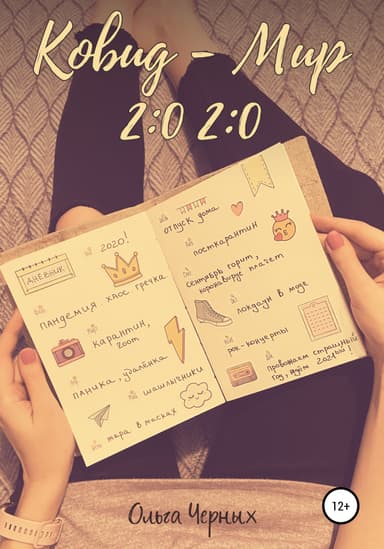 Ковид - Мир
2:0 2:0
2020!
ДНЕВНИК
пандемия. хаос. гречка
карантин,
zoom
паника, удалёнка
шашлычники
жара в масках
отпуск дома
посткарантин
сентябрь горит,
коронавирус плачет
локдаун в моде
рок-концерты
провожаем страшный
год, 2021ый!
Ольга Черных
12+